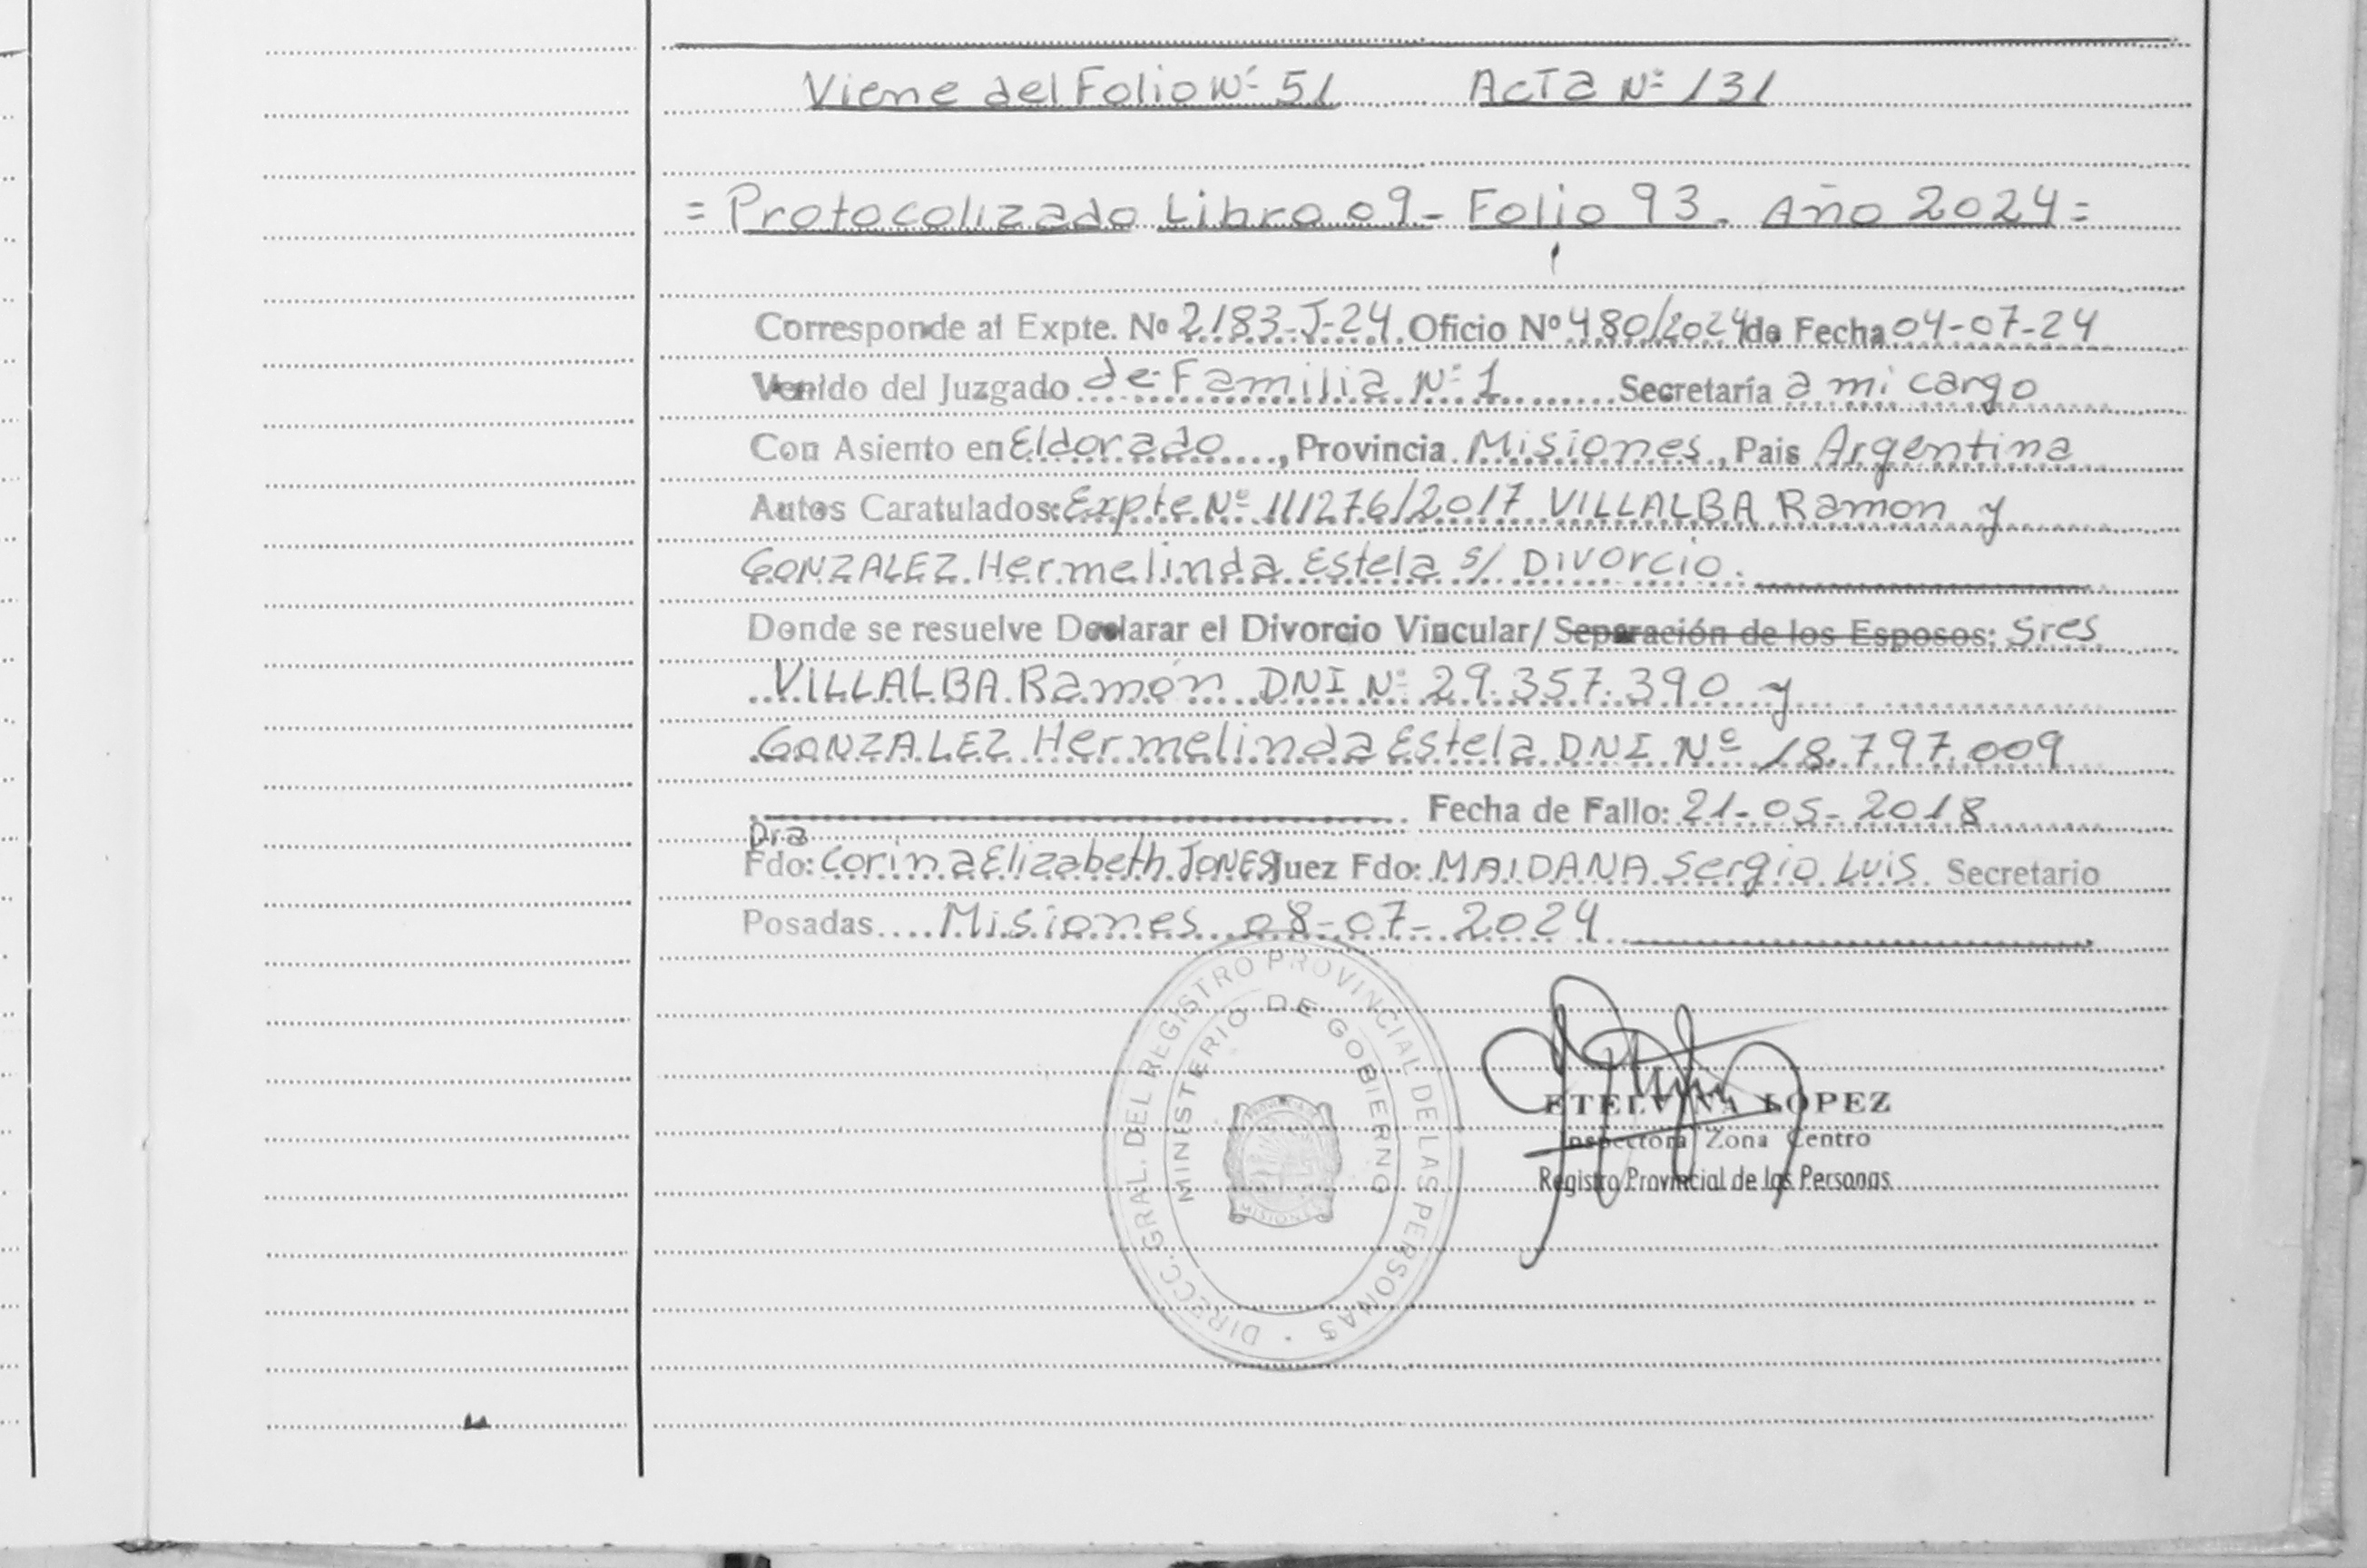 Viene del Folio Nº 51 ACTA Nº 131
= Protocolizado Libro 09 - Folio 93. Año 2024 =
Corresponde al Expte. Nº 2183-J-24 Oficio Nº 480/2024 de Fecha 04-07-24
Venido del Juzgado de Familia Nº 1 Secretaría a mi cargo
Con Asiento en Eldorado, Provincia Misiones, Pais Argentina
Autos Caratulados: Expte Nº 111276/2017 VILLALBA Ramon y
GONZALEZ Hermelinda Estela s/ Divorcio.
Donde se resuelve Declarar el Divorcio Vincular/ Separación de los Esposos: Sres
VILLALBA Ramón DNI Nº 29.357.390 y
GONZALEZ Hermelinda Estela DNI Nº 18.797.009
Fecha de Fallo: 21-05-2018
Dra
Fdo: Corina Elizabeth JONES Juez Fdo: MAIDANA Sergio Luis Secretario
Posadas Misiones 08-07-2024
DIRECC. GRAL. DEL REGISTRO PROVINCIAL DE LAS PERSONAS
MINISTERIO DE GOBIERNO
MISIONES
ETELVINA LOPEZ
Inspectora Zona Centro
Registro Provincial de las Personas